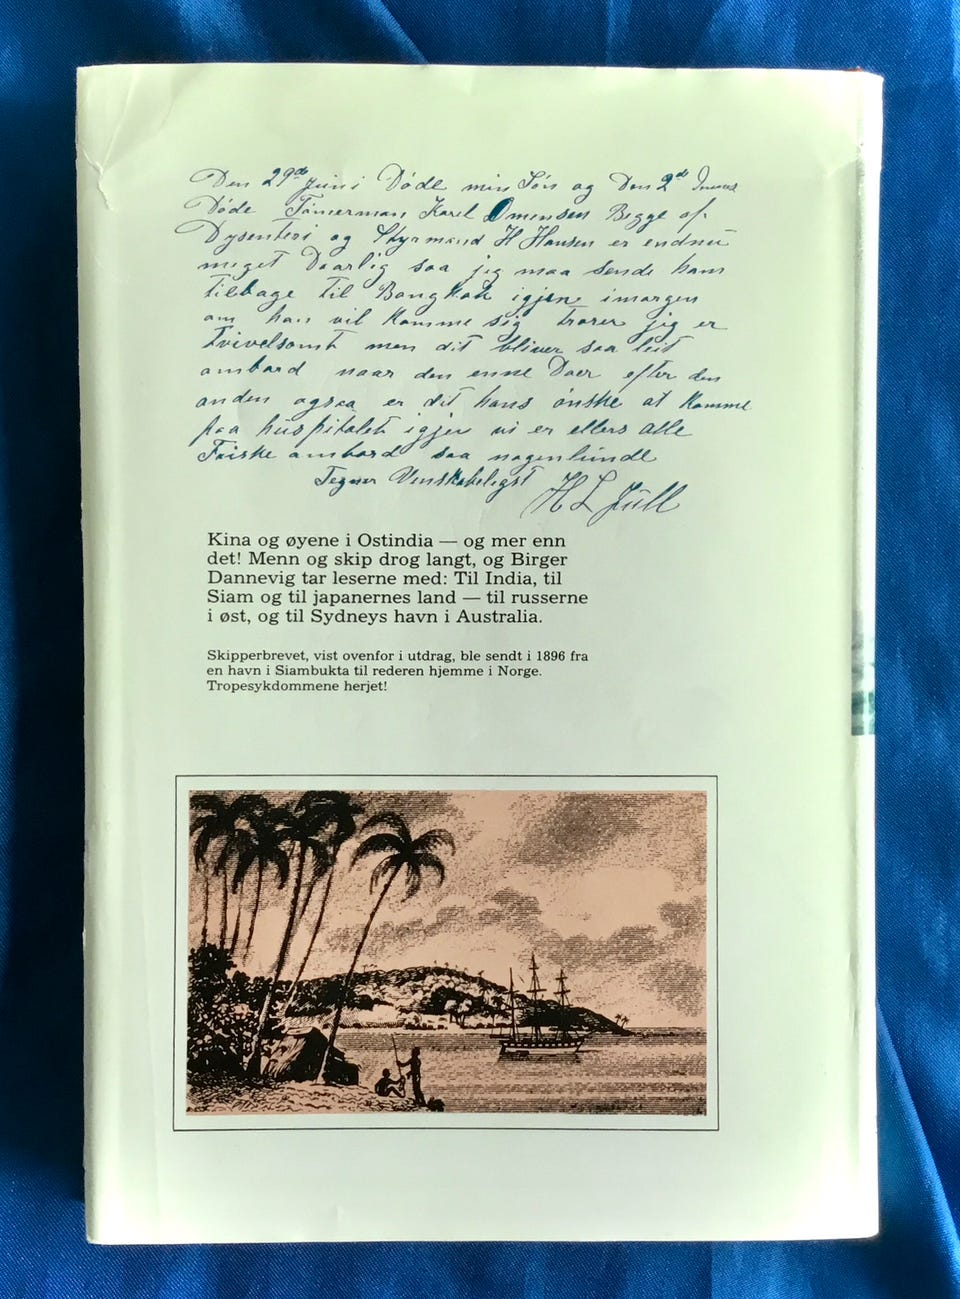 Den 29de Juni Döde min Sön og Den 2de
Döde Tömerman Karel Omensen Begge af
Dysenteri og Styrmand H Hansen er endnu
meget Daarlig saa jeg maa sende ham
tilbage til Bangkok igjen imorgen
om han vil komme sig trorer jeg er
tvivelsomt men dit bliver saa leit
ombord naar den enne Doer efter den
anden ogsaa er dit hans önske at komme
paa huspitalet igjen vi er ellers alle
Friske ombord saa nogenlunde
Tegner Venskabeligst H L Jüll
Kina og øyene i Ostindia — og mer enn
det! Menn og skip drog langt, og Birger
Dannevig tar leserne med: Til India, til
Siam og til japanernes land — til russerne
i øst, og til Sydneys havn i Australia.
Skipperbrevet, vist ovenfor i utdrag, ble sendt i 1896 fra
en havn i Siambukta til rederen hjemme i Norge.
Tropesykdommene herjet!